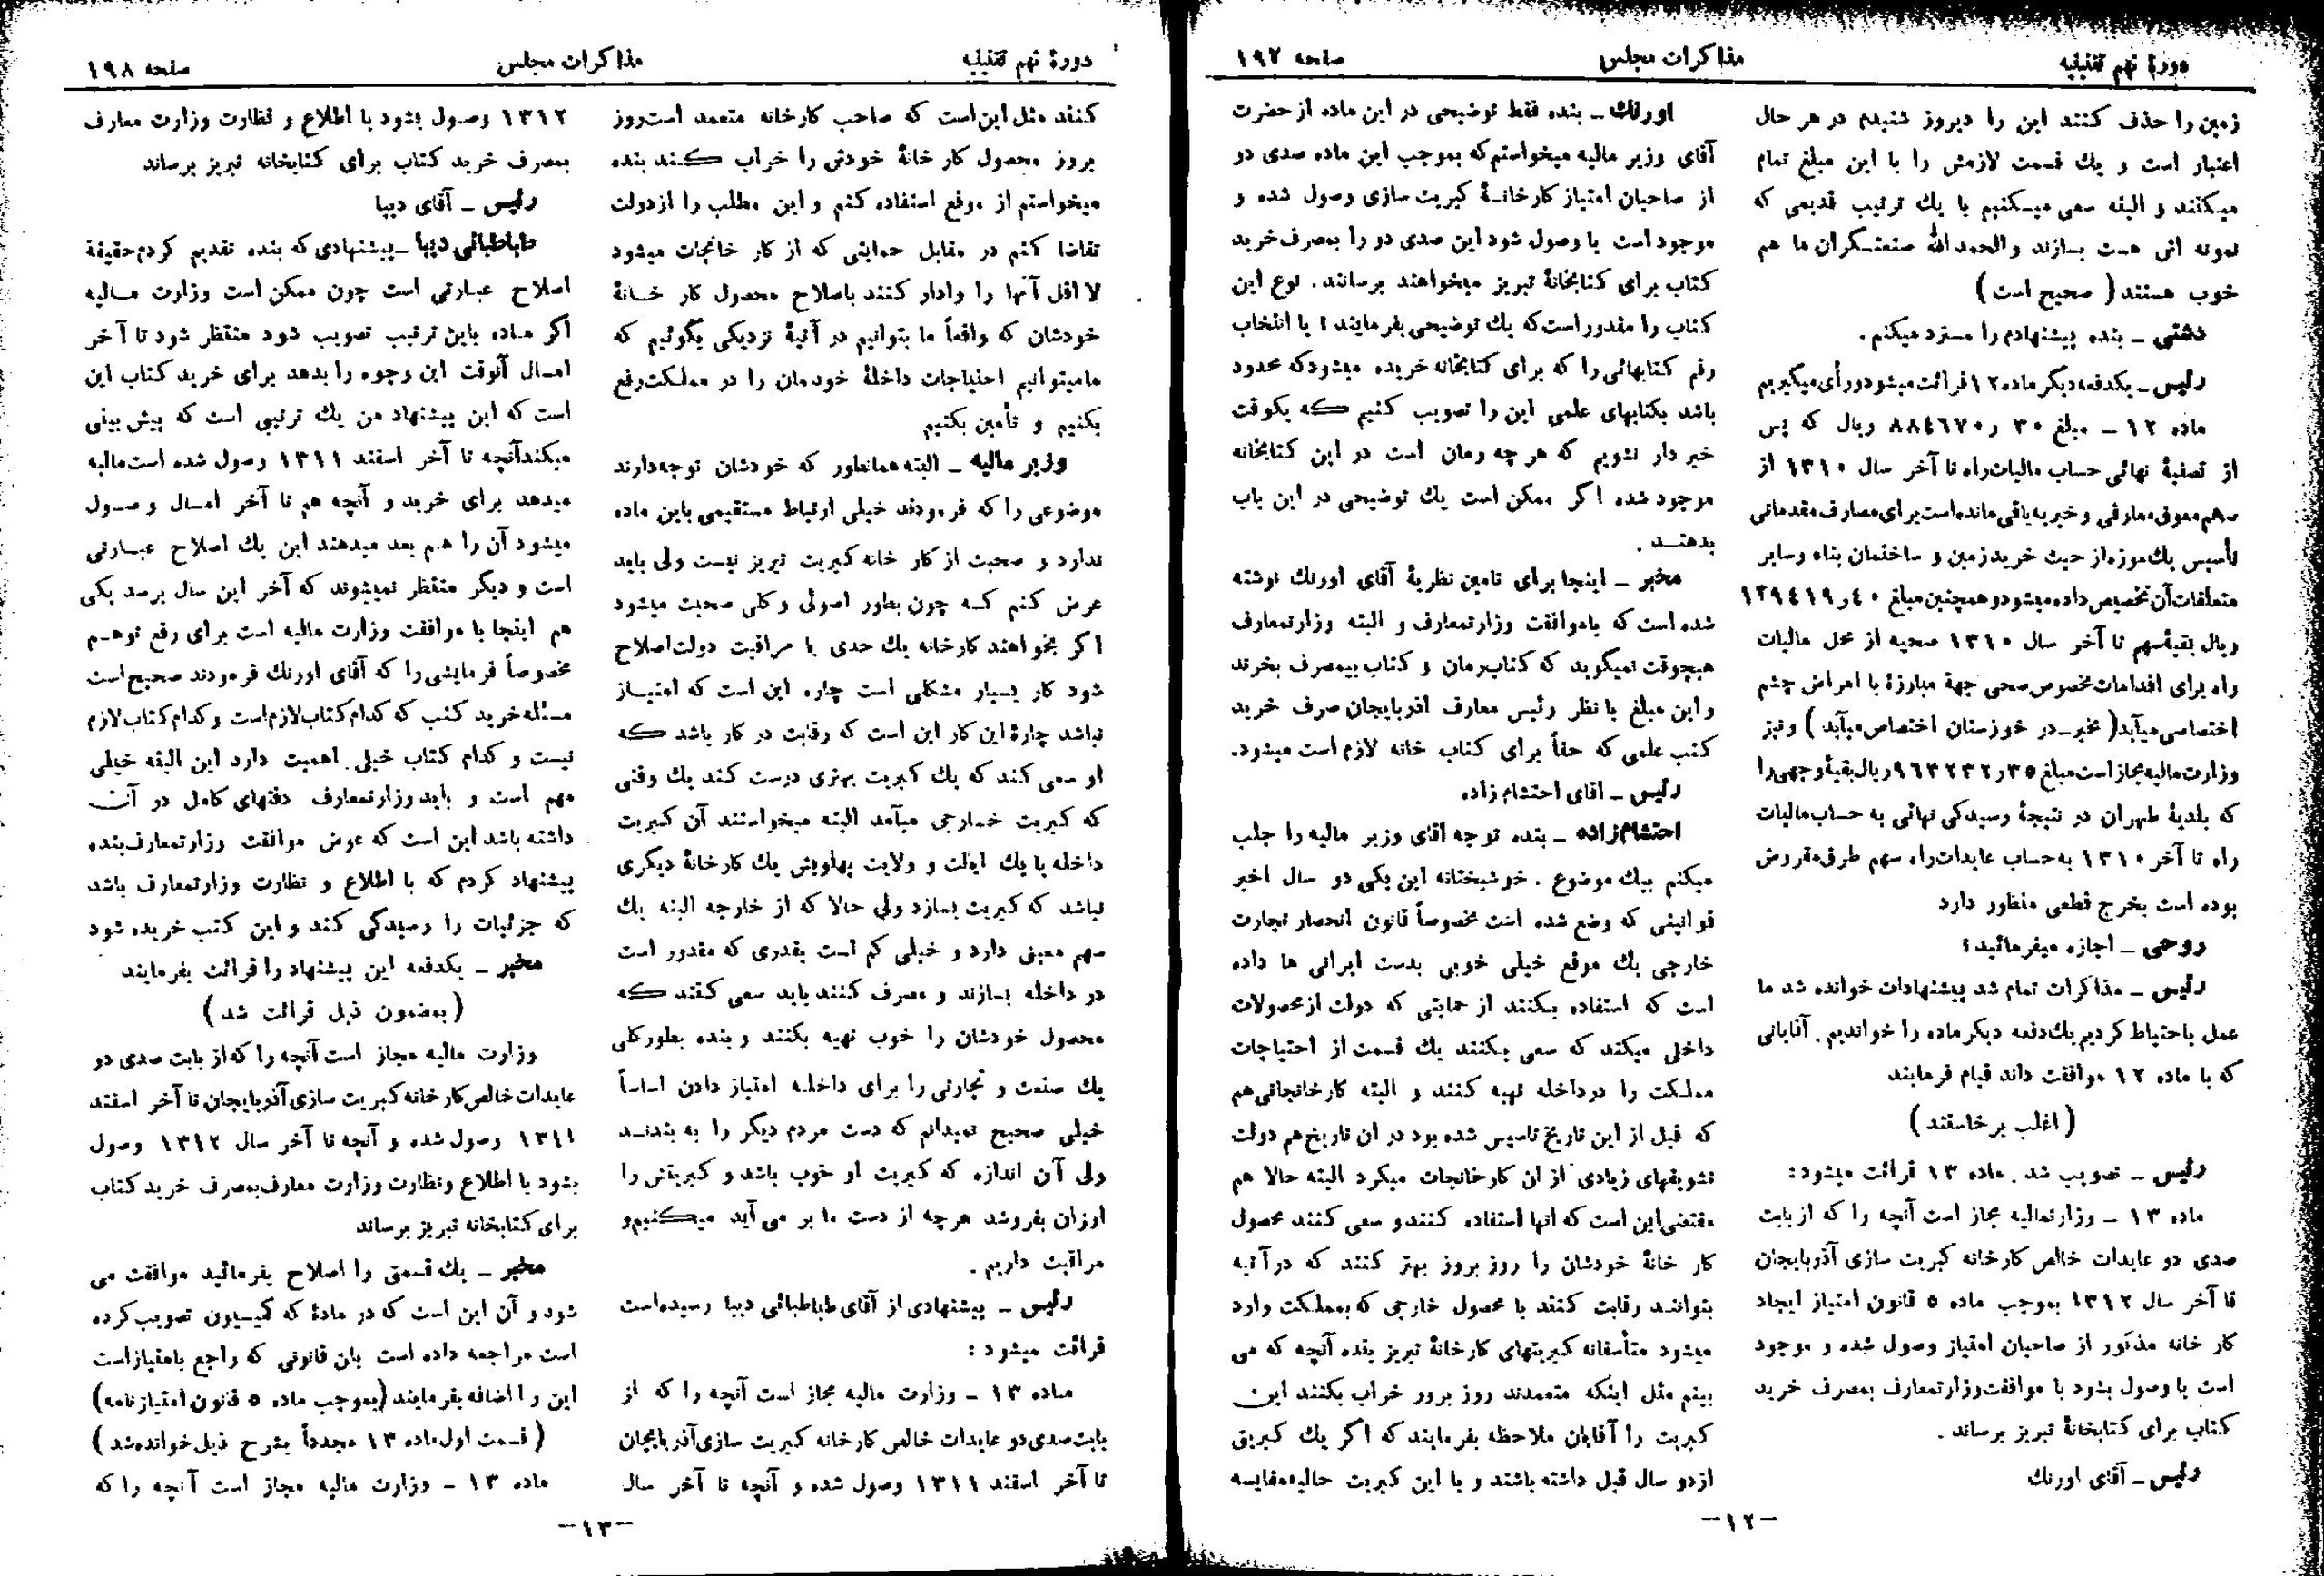 دورهٔ نهم تقنینیه
مذاکرات مجلس
صفحه ۱۹۷
زمین را حذف کنند این را دیروز شنیدم در هر حال
اعتبار است و یك قسمت لازمش را با این مبلغ تمام
میکنند و البته سعی میکنیم با یك ترتیب قدیمی که
نمونه اش هست بسازند والحمد الله صنعتگران ما هم
خوب هستند ( صحیح است )
دشتی ـ بنده پیشنهادم را مسترد میکنم .
رئیس ـ یکدفعه دیگر ماده ۱۲ قرائت میشود و رأی میگیریم
ماده ۱۲ ـ مبلغ ۳۰ر۸۸٤٦٧۰ ریال که پس
از تصفیهٔ نهائی حساب مالیات راه تا آخر سال ۱۳۱۰ از
سهم معوق معارفی و خیریه باقی مانده است برای مصارف مقدماتی
تأسیس یك موزه از حیث خرید زمین و ساختمان بناء و سایر
متعلقات آن تخصیص داده میشود و همچنین مبلغ ٤۰ر۱۲۹٤۱۹
ریال بقیهٔ سهم تا آخر سال ۱۳۱۰ صحیه از محل مالیات
راه برای اقدامات مخصوص صحی جهة مبارزهٔ با امراض چشم
اختصاص میآبد ( مخبر ـ در خوزستان اختصاص میآبد ) و نیز
وزارت مالیه مجاز است مبلغ ۳۵ر۹٦۳۲۳۲ ریال بقیهٔ وجهی را
که بلدیهٔ طهران در نتیجهٔ رسیدگی نهائی به حساب مالیات
راه تا آخر ۱۳۱۰ به حساب عایدات راه سهم طرق مقروض
بوده است بخرج قطعی منظور دارد
روحی ـ اجازه میفرمائید ؟
رئیس ـ مذاکرات تمام شد پیشنهادات خوانده شد ما
عمل باحتیاط کردیم یك دفعه دیگر ماده را خواندیم . آقایانی
که با ماده ۱۲ موافقت داند قیام فرمایند
( اغلب برخاستند )
رئیس ـ تصویب شد . ماده ۱۳ قرائت میشود :
ماده ۱۳ ـ وزارتمالیه مجاز است آنچه را که از بابت
صدی دو عایدات خالص کارخانه کبریت سازی آذربایجان
تا آخر سال ۱۳۱۲ بموجب ماده ۵ قانون امتیاز ایجاد
کار خانه مذکور از صاحبان امتیاز وصول شده و موجود
است یا وصول بشود با موافقت وزارتمعارف بمصرف خرید
کتاب برای کتابخانهٔ تبریز برساند .
رئیس ـ آقای اورنك
اورنك ـ بنده فقط توضیحی در این ماده از حضرت
آقای وزیر مالیه میخواستم که بموجب این ماده صدی دو
از صاحبان امتیاز کارخانهٔ کبریت سازی وصول شده و
موجود است یا وصول شود این صدی دو را بمصرف خرید
کتاب برای کتابخانهٔ تبریز میخواهند برسانند . نوع این
کتاب را مقدور است که یك توضیحی بفرمایند ؟ یا انتخاب
رقم کتابهائی را که برای کتابخانه خریده میشود که محدود
باشد بکتابهای علمی این را تصویب کنیم که یکوقت
خبر دار نشویم که هر چه رمان است در این کتابخانه
موجود شده اگر ممکن است یك توضیحی در این باب
بدهند .
مخبر ـ اینجا برای تامین نظریهٔ آقای اورنك نوشته
شده است که باموافقت وزارتمعارف و البته وزارتمعارف
هیچوقت نمیگوید که کتاب رمان و کتاب بیمصرف بخرند
و این مبلغ با نظر رئیس معارف اذربایجان صرف خرید
کتب علمی که حقاً برای کتاب خانه لازم است میشود.
رئیس ـ اقای احتشام زاده
احتشام‌زاده ـ بنده توجه اقای وزیر مالیه را جلب
میکنم بیك موضوع . خوشبختانه این یکی دو سال اخیر
قوانینی که وضع شده است مخصوصاً قانون انحصار تجارت
خارجی یك موقع خیلی خوبی بدست ایرانی ها داده
است که استفاده بکنند از حمایتی که دولت از محصولات
داخلی میکند که سعی بکنند یك قسمت از احتیاجات
مملکت را درداخله تهیه کنند و البته کارخانجاتی هم
که قبل از این تاریخ تاسیس شده بود در ان تاریخ هم دولت
تشویقهای زیادی از ان کارخانجات میکرد البته حالا هم
مقتضی این است که انها استفاده کنند و سعی کنند محصول
کار خانهٔ خودشان را روز بروز بهتر کنند که در آتیه
بتوانند رقابت کنند با محصول خارجی که بمملکت وارد
میشود متأسفانه کبریتهای کارخانهٔ تبریز بنده آنچه که می
بینم مثل اینکه متعمدند روز برور خراب بکنند این
کبریت را آقایان ملاحظه بفرمایند که اگر یك کبریتی
ازدو سال قبل داشته باشند و با این کبریت حالیه مقایسه
ـ۱۲ـ
دورهٔ نهم تقنینیه
مذاکرات مجلس
صفحه ۱۹۸
کنند مثل این است که صاحب کارخانه متعمد است روز
بروز محصول کارخانهٔ خودش را خراب کند بنده
میخواستم از موقع استفاده کنم و این مطلب را از دولت
تقاضا کنم در مقابل حمایتی که از کار خانجات میشود
لا اقل آنها را وادار کنند باصلاح محصول کار خانهٔ
خودشان که واقعاً ما بتوانیم در آتیهٔ نزدیکی بگوئیم که
مامیتوانیم احتیاجات داخلهٔ خودمان را در مملکت رفع
بکنیم و تأمین بکنیم
وزیر مالیه ـ البته همانطور که خودشان توجه دارند
موضوعی را که فرمودند خیلی ارتباط مستقیمی باین ماده
ندارد و صحبت از کار خانه کبریت تبریز نیست ولی باید
عرض کنم که چون بطور اصولی و کلی صحبت میشود
اگر بخواهند کارخانه یك حدی با مراقبت دولت اصلاح
شود کار بسیار مشکلی است چاره این است که امتیاز
نباشد چارهٔ این کار این است که رقابت در کار باشد که
او سعی کند که یك کبریت بهتری درست کند یك وقتی
که کبریت خارجی میآمد البته میخواستند آن کبریت
داخله با یك ایالت و ولایت پهلویش یك کارخانهٔ دیگری
نباشد که کبریت بسازد ولی حالا که از خارجه البته یك
سهم معینی دارد و خیلی کم است بقدری که مقدور است
در داخله بسازند و مصرف کنند باید سعی کنند که
محصول خودشان را خوب تهیه بکنند و بنده بطور کلی
یك صنعت و تجارتی را برای داخله امتیاز دادن اساساً
خیلی صحیح نمیدانم که دست مردم دیگر را به بندند
ولی آن اندازه که کبریت او خوب باشد و کبریتش را
ارزان بفروشد هرچه از دست ما بر می آید میکنیم و
مراقبت داریم .
رئیس ـ پیشنهادی از آقای طباطبائی دیبا رسیده است
قرائت میشود :
ماده ۱۳ ـ وزارت مالیه مجاز است آنچه را که از
بابت صدی دو عایدات خالص کارخانه کبریت سازی آذربایجان
تا آخر اسفند ۱۳۱۱ وصول شده و آنچه تا آخر سال
۱۳۱۲ وصول بشود با اطلاع و نظارت وزارت معارف
بمصرف خرید کتاب برای کتابخانه تبریز برساند
رئیس ـ آقای دیبا
طباطبائی دیبا ـ پیشنهادی که بنده تقدیم کردم حقیقة
اصلاح عبارتی است چون ممکن است وزارت مالیه
اگر ماده باین ترتیب تصویب شود منتظر شود تا آخر
امسال آنوقت این وجوه را بدهد برای خرید کتاب این
است که این پیشنهاد من یك ترتیبی است که پیش بینی
میکند آنچه تا آخر اسفند ۱۳۱۱ وصول شده است مالیه
میدهد برای خرید و آنچه هم تا آخر امسال وصول
میشود آن را هم بعد میدهند این یك اصلاح عبارتی
است و دیگر منتظر نمیشوند که آخر این سال برسد یکی
هم اینجا با موافقت وزارت مالیه است برای رفع توهم
مخصوصاً فرمایشی را که آقای اورنك فرمودند صحیح است
مسئله خرید کتب که کدام کتاب لازم است و کدام کتاب لازم
نیست و کدام کتاب خیلی اهمیت دارد این البته خیلی
مهم است و باید وزارتمعارف دقتهای کامل در آن
داشته باشد این است که عوض موافقت وزارتمعارف بنده
پیشنهاد کردم که با اطلاع و نظارت وزارتمعارف باشد
که جزئیات را رسیدگی کند و این کتب خریده شود
مخبر ـ یکدفعه این پیشنهاد را قرائت بفرمایند
( بمضمون ذیل قرائت شد )
وزارت مالیه مجاز است آنچه را که از بابت صدی دو
عایدات خالص کارخانه کبریت سازی آذربایجان تا آخر اسفند
۱۳۱۱ وصول شده و آنچه تا آخر سال ۱۳۱۲ وصول
بشود با اطلاع ونظارت وزارت معارف بمصرف خرید کتاب
برای کتابخانه تبریز برساند
مخبر ـ یك قسمتی را اصلاح بفرمائید موافقت می
شود و آن این است که در مادهٔ که کمیسیون تصویب کرده
است مراجعه داده است بان قانونی که راجع بامتیاز است
این را اضافه بفرمایند (بموجب ماده ۵ قانون امتیاز نامه)
( قسمت اول ماده ۱۳ مجدداً بشرح ذیل خوانده شد )
ماده ۱۳ ـ وزارت مالیه مجاز است آنچه را که
ـ۱۳ـ